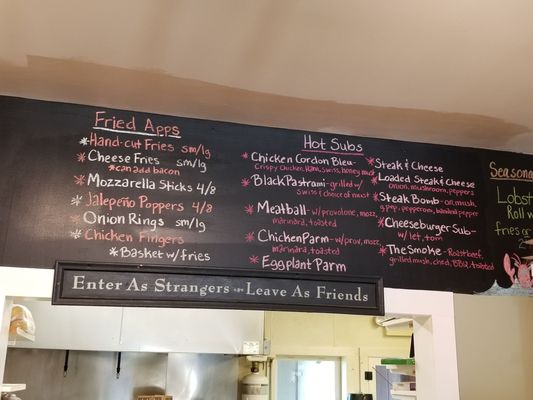 Fried Apps
*Hand-cut Fries sm/lg
*Cheese Fries sm/lg
*can add bacon
*Mozzarella Sticks 4/8
*Jalapeño Poppers 4/8
*Onion Rings sm/lg
*Chicken Fingers
*Basket w/fries
Hot Subs
*Chicken Cordon Bleu-
Crispy Chicken, Ham, Swiss, honey must
*Black Pastrami-grilled w/
Swiss & choice of must
*Meatball-w/provolone, mozz,
marinara, toasted
*Chicken Parm-w/prov, mozz,
marinara, toasted
*Eggplant Parm
*Steak & Cheese
*Loaded Steak & Cheese
onion, mushroom, peppers
*Steak Bomb-on, mush,
g.pep, pepperoni,
*Cheeseburger Sub-
w/let, tom
*The Smoke-Roast beef,
grilled mush, ched, BBQ, toasted
Seasona
Lobst
Roll w
fries or
Enter As Strangers - Leave As Friends